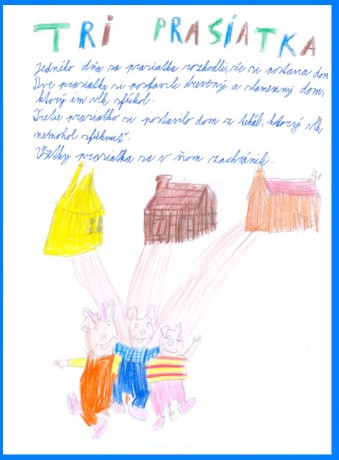 TRI PRASIATKA
Jedného dňa sa prasiatka rozhodli, že si postavia dom.
Dve prasiatka si postavili drevený a slamenný dom,
ktorý im vlk sfúkol.
Tretie prasiatko si postavilo dom z tehál, ktorý vlk
nemohol sfúknuť.
Všetky prasiatka sa v ňom zachránili.